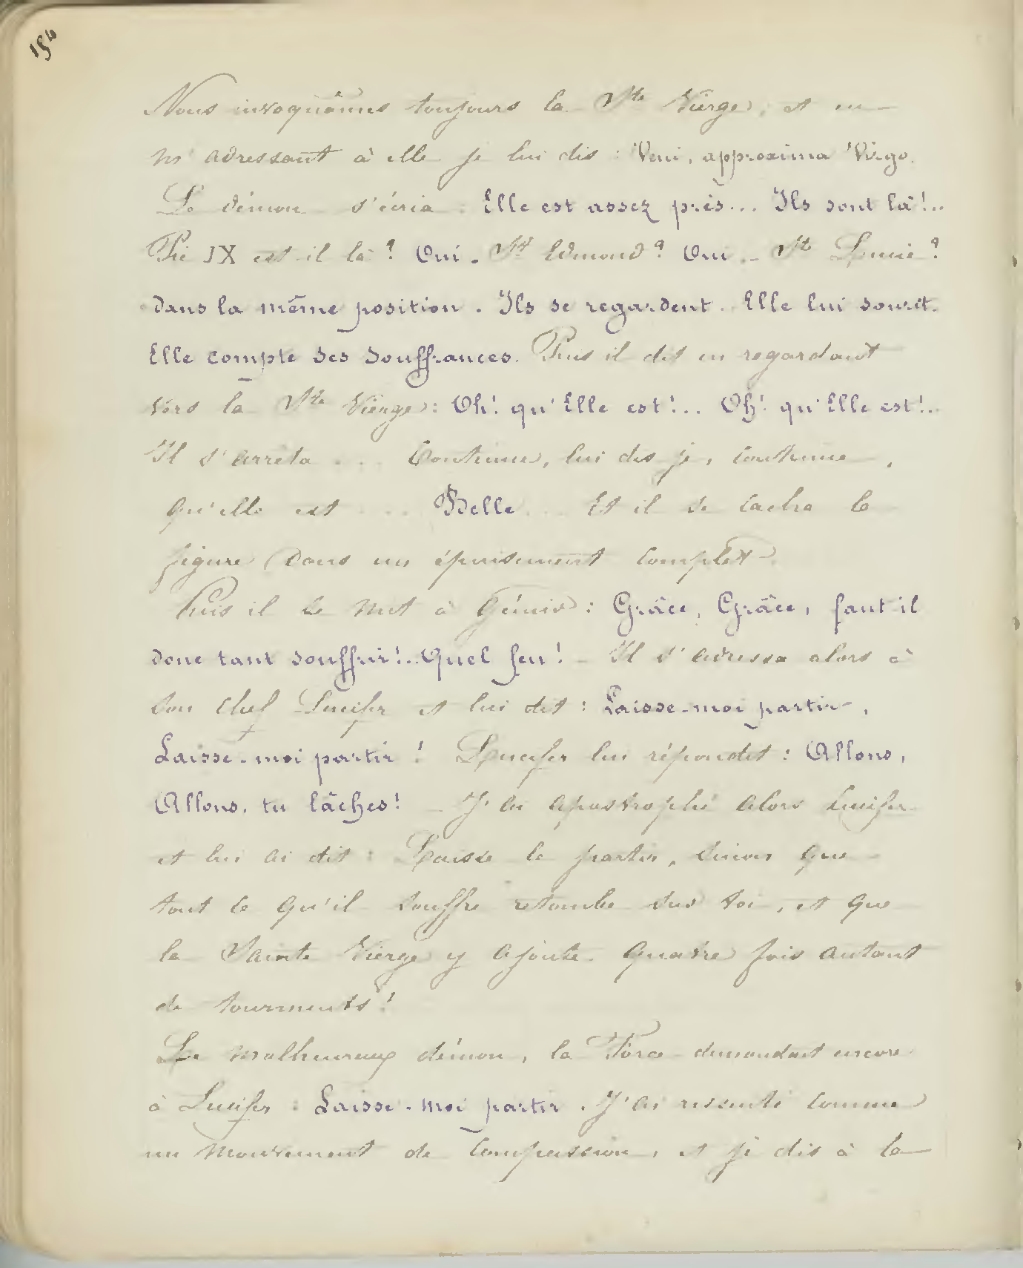 154
Nous invoquâmes toujours la Ste Vierge, et en
m'adressant à elle je lui dis : Veni, approxima Virgo.
Le démon s'écria : Elle est assez près... Ils sont là!..
Pie IX est-il là? Oui. St Edmond? Oui. - St Louis?
dans la même position. Ils se regardent. Elle lui sourit.
Elle compte ses souffrances. Puis il dit en regardant
vers la Ste Vierge : Oh! qu'Elle est!.. Oh! qu'Elle est!..
Il s'arrêta ... Continue, lui dis je, continue,
qu'elle est ... Belle ... Et il se cacha la
figure dans un épuisement complet.
Puis il se met à gémir : Grâce, Grâce, faut il
donc tant souffrir!.. Quel feu! - Il s'adressa alors à
son chef Lucifer et lui dit : Laisse-moi partir,
Laisse-moi partir! Lucifer lui répondit : Allons,
Allons, tu lâches! - J'ai apostrophé alors Lucifer
et lui ai dit : Laisse le partir, sinon que
tout ce qu'il souffre retombe sur toi, et que
la Sainte Vierge y ajoute quatre fois autant
de tourments!
Le malheureux démon, la Force demandait encore
à Lucifer : Laisse-moi partir. J'ai ressenti comme
un mouvement de compassion, et je dis à la